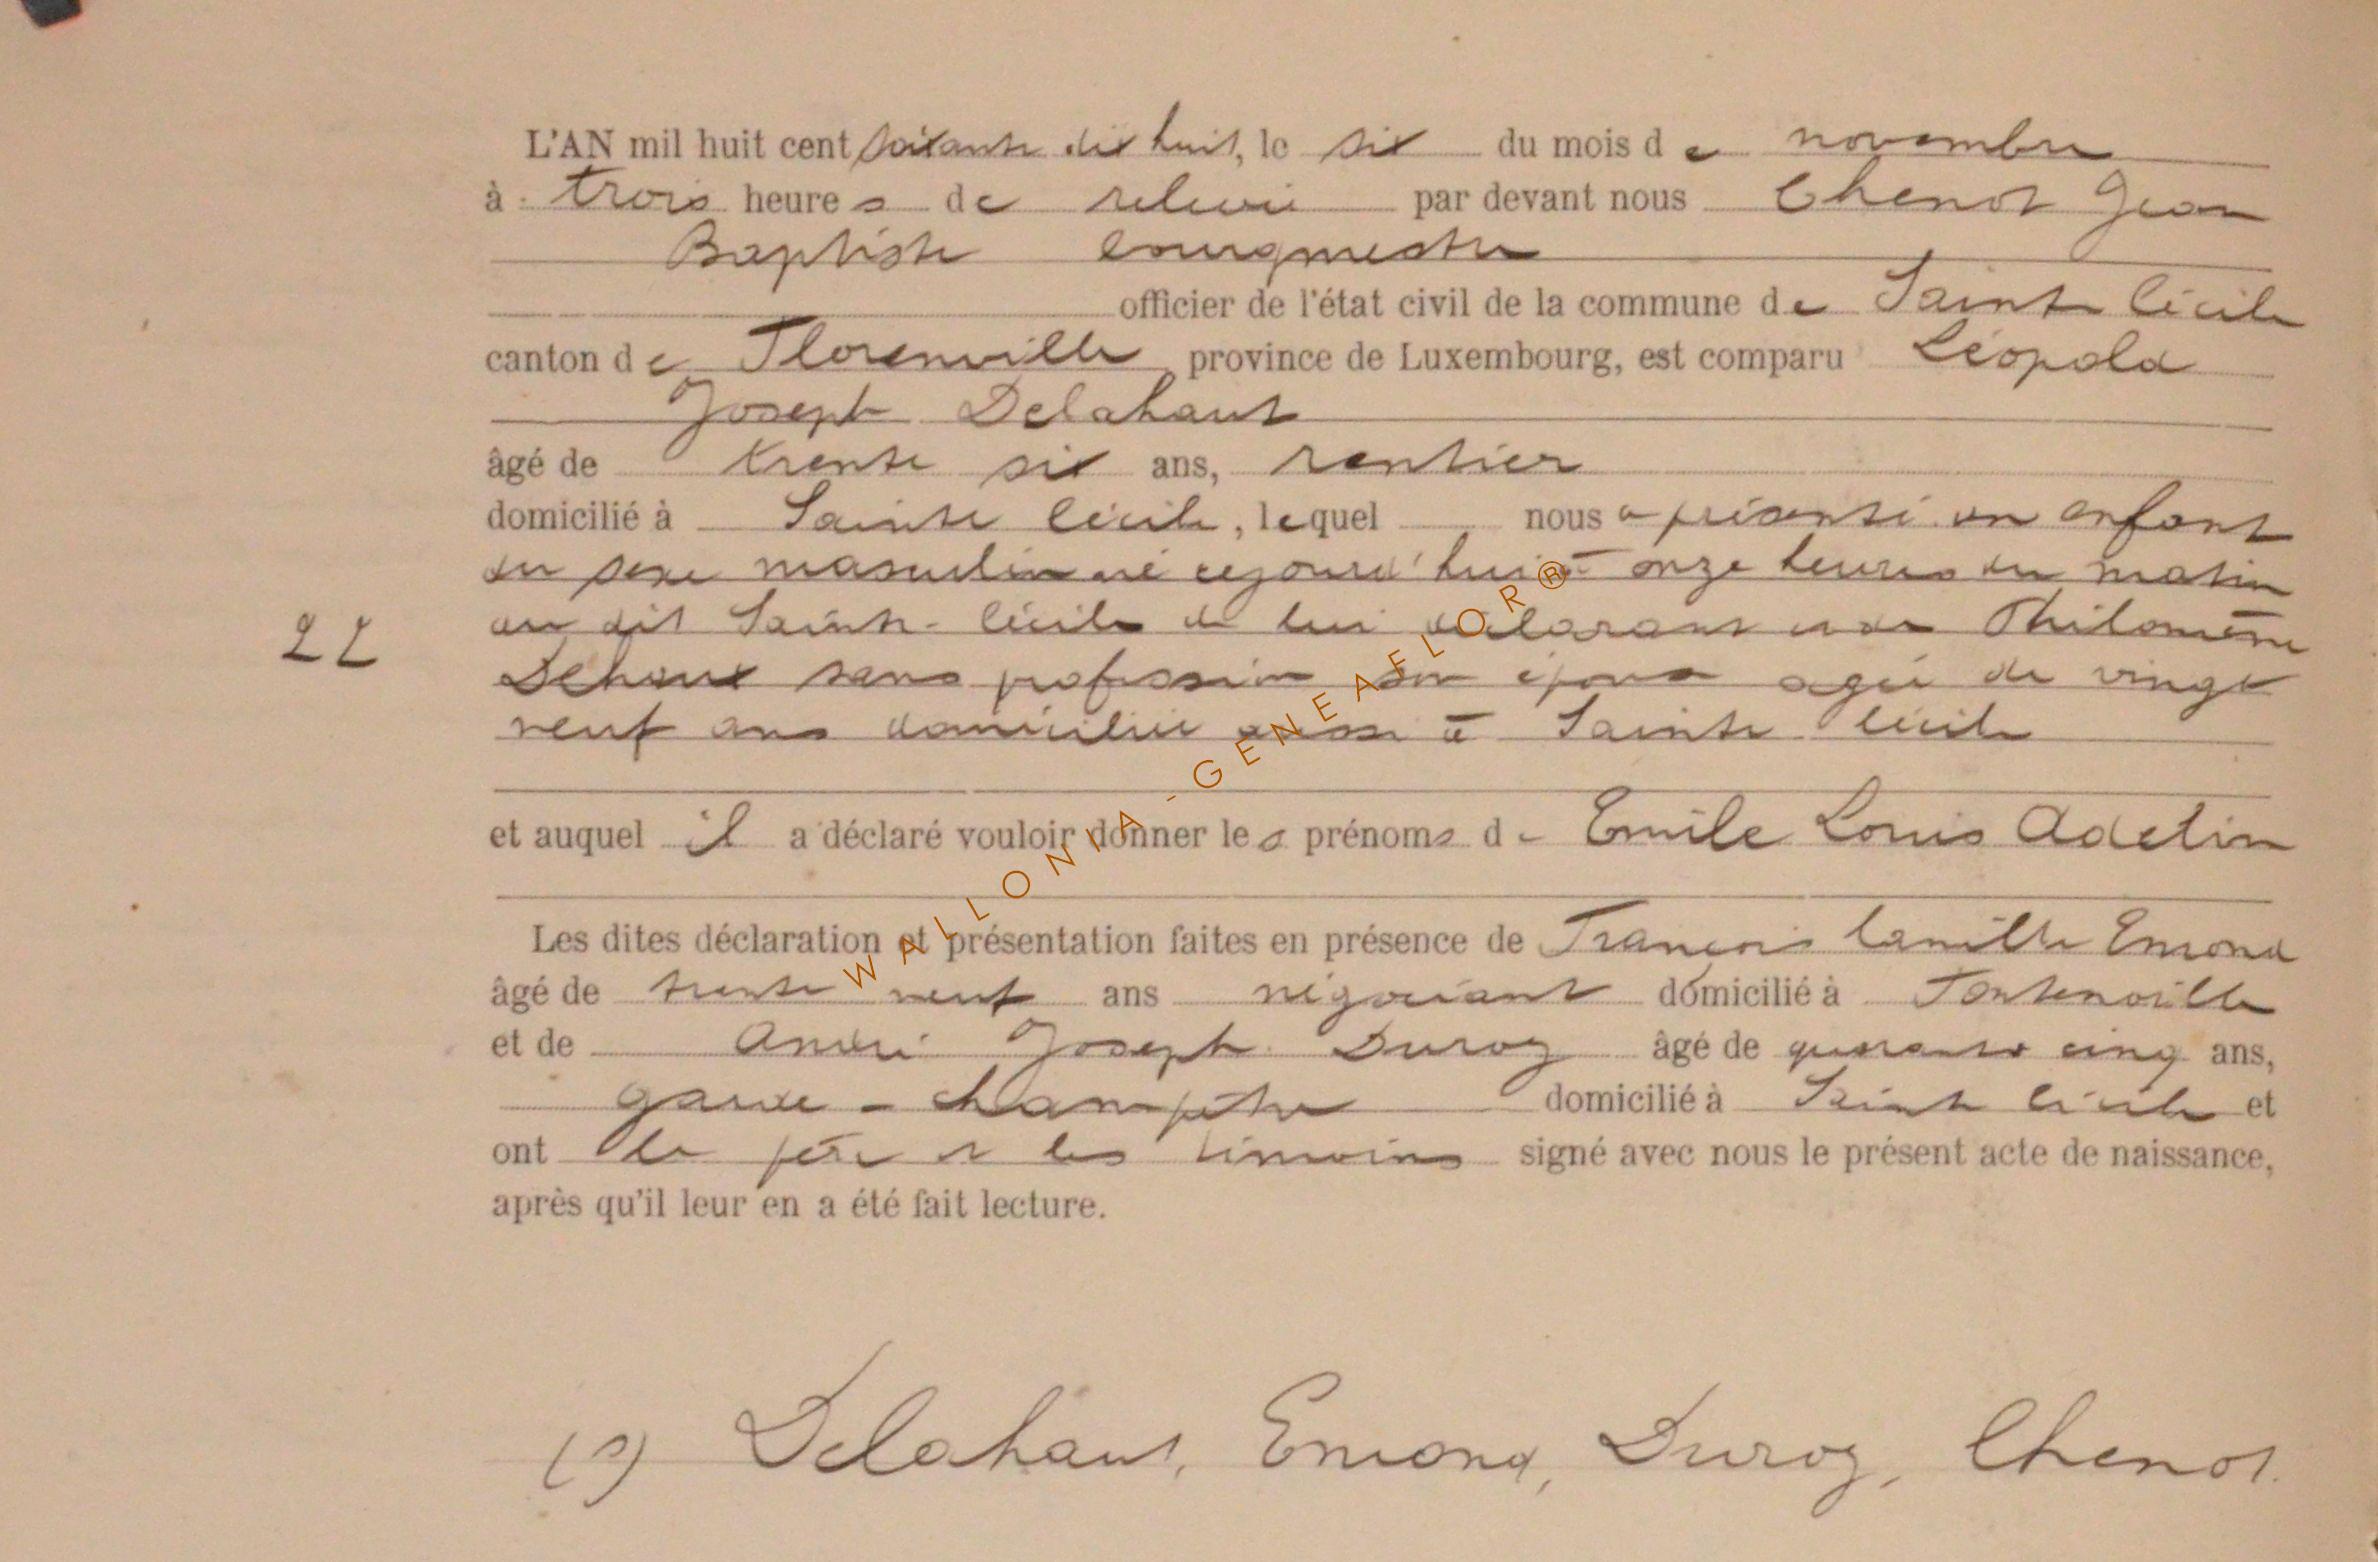 L'AN mil huit cent soixante dix huit, le six du mois de novembre
à trois heures de relevée par devant nous Chenot Jean
Baptiste bourgmestre
officier de l'état civil de la commune de Sainte Cécile
canton de Florenville, province de Luxembourg, est comparu Léopold
Joseph Delahaut
âgé de trente six ans, rentier
domicilié à Sainte Cécile, lequel nous a présenté un enfant
du sexe masculin né cejourd'hui à onze heures du matin
au dit Sainte-Cécile de lui déclarant et de Philomène
Dehoux sans profession son épouse agée de vingt
neuf ans domiciliée aussi à Sainte Cécile
22
et auquel il a déclaré vouloir donner les prénoms de Emile Louis Adelin
Les dites déclaration et présentation faites en présence de François Camille Emond
âgé de trente neuf ans négociant domicilié à Fontenoille
et de André Joseph Duroy âgé de quarante cinq ans,
garde-champêtre domicilié à Sainte Cécile et
ont le père et les témoins signé avec nous le présent acte de naissance,
après qu'il leur en a été fait lecture.
(s) Delahaut, Emond, Duroy, Chenot.
WALLONIA-GENEAFLOR®